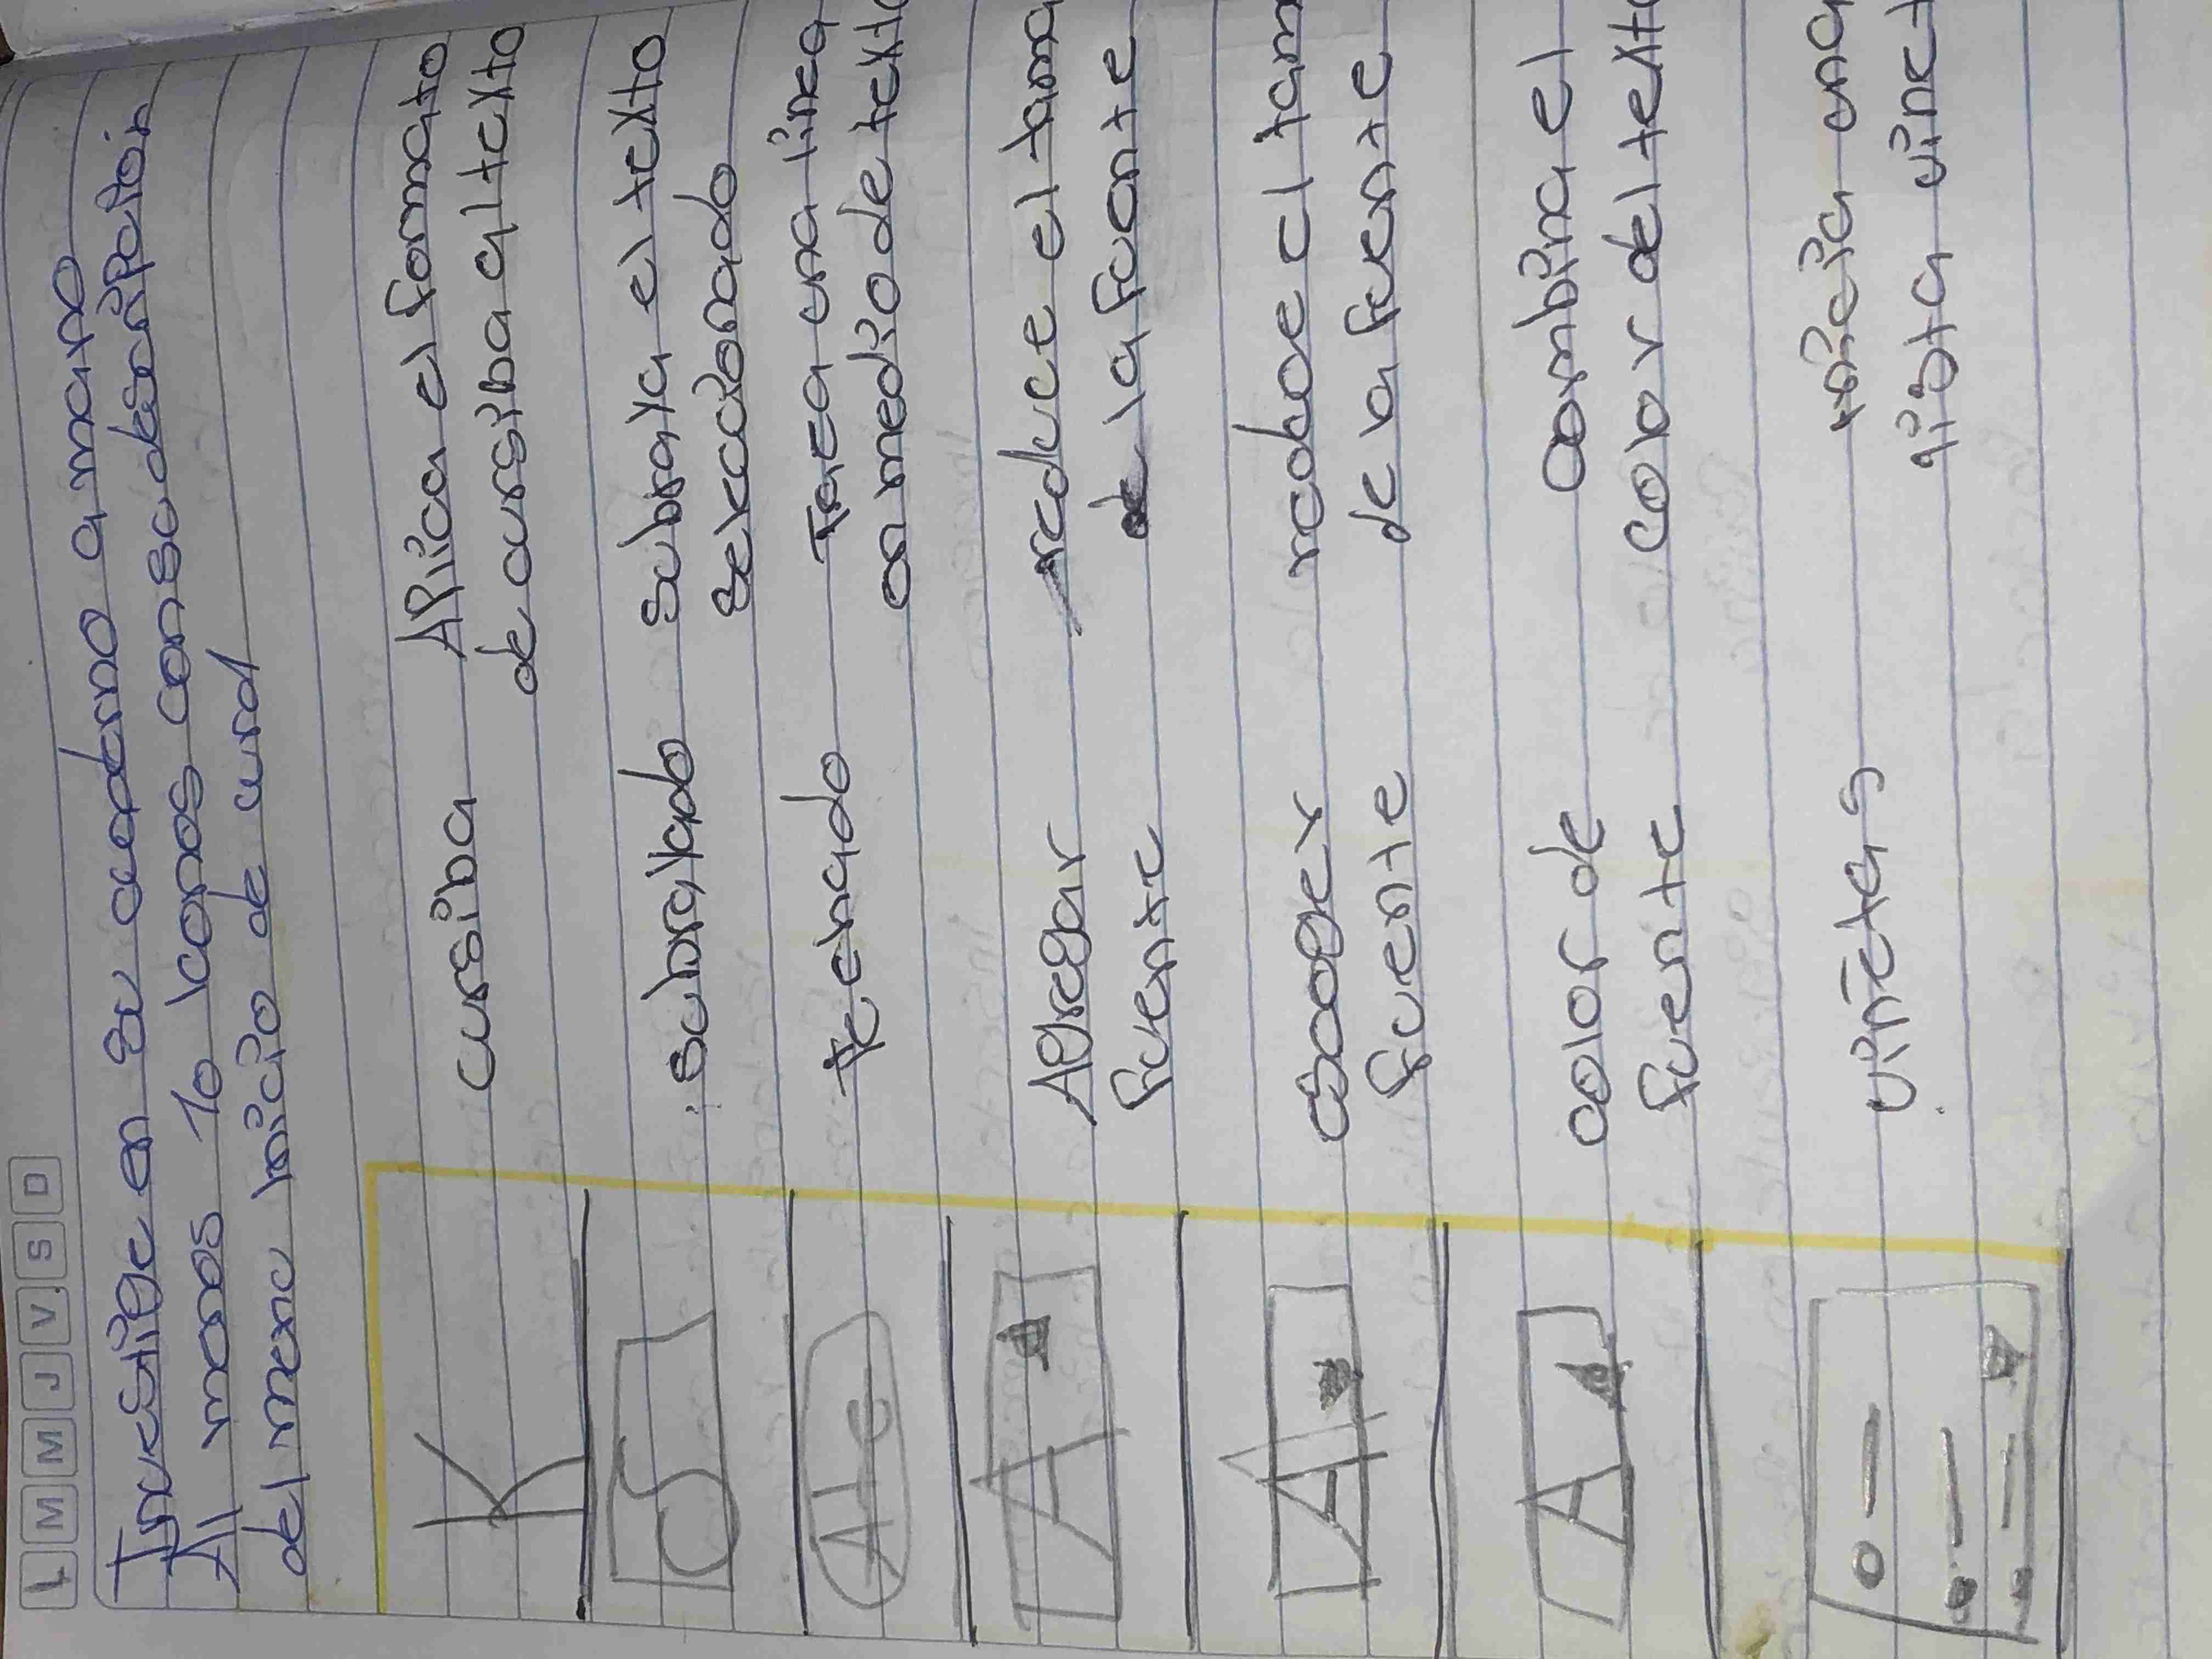 L M M J V S D
Investige en su cuaderno a mano
Al menos 10 Iconos con su descripción
del menu inicio de
K cursiba Aplica el formato
de cursiba al texto
S subrayado subraya el texto
seleccionado
Ab tachado Traza una linea
en medio de texto
A Agregar reduce el tama
fuente de la fuente
A escoger redoce el tam
fuente de la fuente
A color de combina el
fuente color del texto
viñetas inicia una
lista